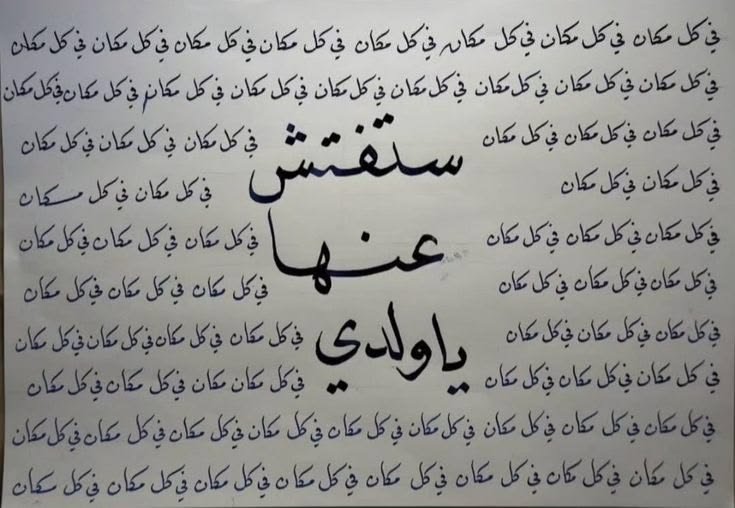 في كل مكان في كل مكان في كل مكان في كل مكان في كل مكان في كل مكان في كل مكان في كل مكان
في كل مكان في كل مكان في كل مكان في كل مكان في كل مكان في كل مكان في كل مكان في كل مكان في كل مكان
في كل مكان في كل مكان في كل مكان ستفتش في كل مكان في كل مكان في كل مكان
في كل مكان في كل مكان في كل مكان في كل مكان
في كل مكان في كل مكان في كل مكان عنها في كل مكان في كل مكان في كل مكان
في كل مكان في كل مكان في كل مكان في كل مكان في كل مكان في كل مكان
في كل مكان في كل مكان في كل مكان ياولدي في كل مكان في كل مكان في كل مكان في كل مكان
في كل مكان في كل مكان في كل مكان في كل مكان مكان في كل مكان في كل مكان
في كل مكان في كل مكان في كل مكان في كل مكان في كل مكان في كل مكان في كل مكان في كل مكان في كل مكان
في كل مكان في كل مكان في كل مكان في كل مكان في كل مكان في كل مكان في كل مكان في كل مكان